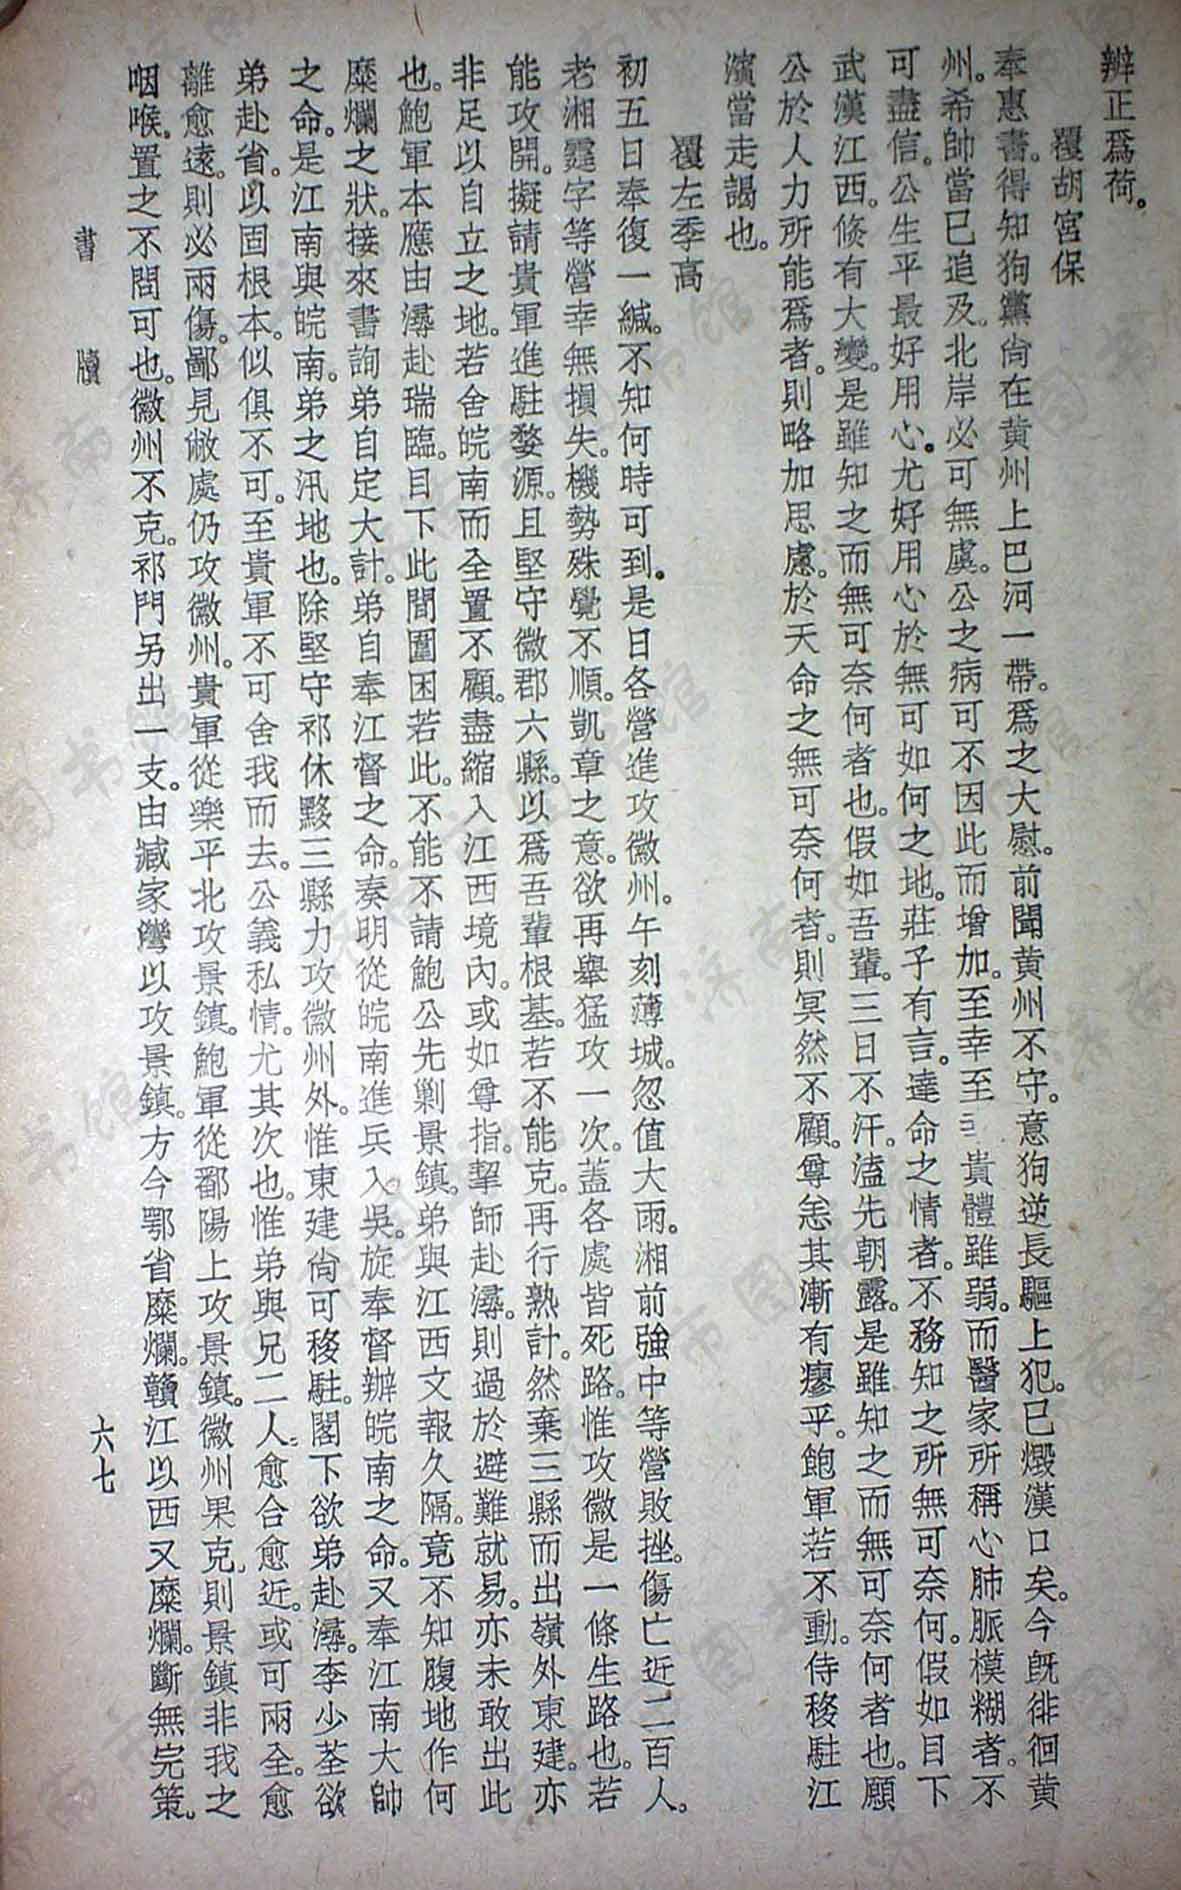 辨正爲荷。
覆胡宮保
奉惠書。得知狗黨尙在黃州上巴河一帶。爲之大慰。前聞黃州不守。意狗逆長驅上犯。已燬漢口矣。今旣徘徊黃
州。希帥當已追及。北岸必可無虞。公之病可不因此而增加。至幸至 貴體雖弱。而醫家所稱心肺脈模糊者。不
可盡信。公生平最好用心。尤好用心於無可如何之地。莊子有言。達命之情者。不務知之所無可奈何。假如目下
武漢江西。倏有大變。是雖知之而無可奈何者也。假如吾輩。三日不汗。溘先朝露。是雖知之而無可奈何者也。願
公於人力所能爲者。則略加思慮。於天命之無可奈何者。則冥然不顧。尊恙其漸有瘳乎。鮑軍若不動。侍移駐江
濱當走謁也。
覆左季高
初五日奉復一緘。不知何時可到。是日各營進攻徽州。午刻薄城。忽值大雨。湘前強中等營敗挫。傷亡近二百人。
老湘霆字等營幸無損失。機勢殊覺不順。凱章之意。欲再舉猛攻一次。蓋各處皆死路。惟攻徽是一條生路也。若
能攻開。擬請貴軍進駐婺源。且堅守徽郡六縣。以爲吾輩根基。若不能克。再行熟計。然棄三縣而出嶺外東建。亦
非足以自立之地。若舍皖南而全置不顧。盡縮入江西境內。或如尊指。挈師赴潯。則過於避難就易。亦未敢出此
也。鮑軍本應由潯赴瑞臨。目下此間圍困若此。不能不請鮑公先剿景鎮。弟與江西文報久隔。竟不知腹地作何
糜爛之狀。接來書詢弟自定大計。弟自奉江督之命。奏明從皖南進兵入吳。旋奉督辦皖南之命。又奉江南大帥
之命。是江南與皖南。弟之汛地也。除堅守祁休黟三縣力攻徽州外。惟東建尙可移駐。閣下欲弟赴潯。李少荃欲
弟赴省。以固根本。似俱不可。至貴軍不可舍我而去。公義私情。尤其次也。惟弟與兄二人。愈合愈近。或可兩全。愈
離愈遠。則必兩傷。鄙見敝處仍攻徽州。貴軍從樂平北攻景鎮。鮑軍從鄱陽上攻景鎮。徽州果克。則景鎮非我之
咽喉。置之不問可也。徽州不克。祁門另出一支。由臧家灣以攻景鎮。方今鄂省糜爛。贛江以西又糜爛。斷無完策。
書牘
六七